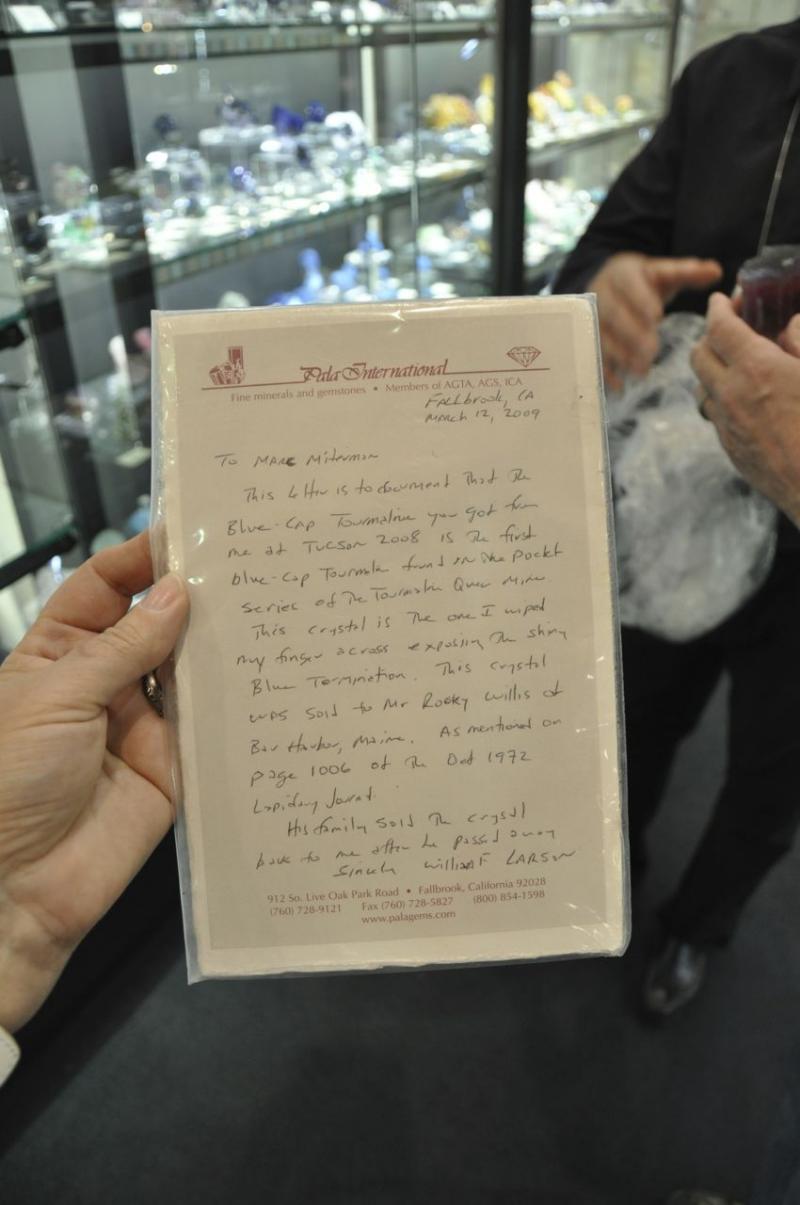 Pala International
Fine minerals and gemstones • Members of AGTA, AGS, ICA
Fallbrook, CA
March 12, 2009
To Marc Miterman
This letter is to document that the
Blue-Cap Tourmaline you got from
me at Tucson 2008 is the first
blue-cap Tourmaline found in the pocket
series of the Tourmaline Queen Mine.
This crystal is the one I wiped
my finger across exposing the shiny
Blue Termination. This crystal
was sold to Mr Rocky Willis of
Bar Harbor, Maine. As mentioned on
page 1006 of the 1972
Lapidary Journal.
His family sold the crystal
back to me after he passed away
William F LARSON
912 So. Live Oak Park Road • Fallbrook, California 92028
(760) 728-9121 Fax (760) 728-5827 (800) 854-1598
www.palagems.com